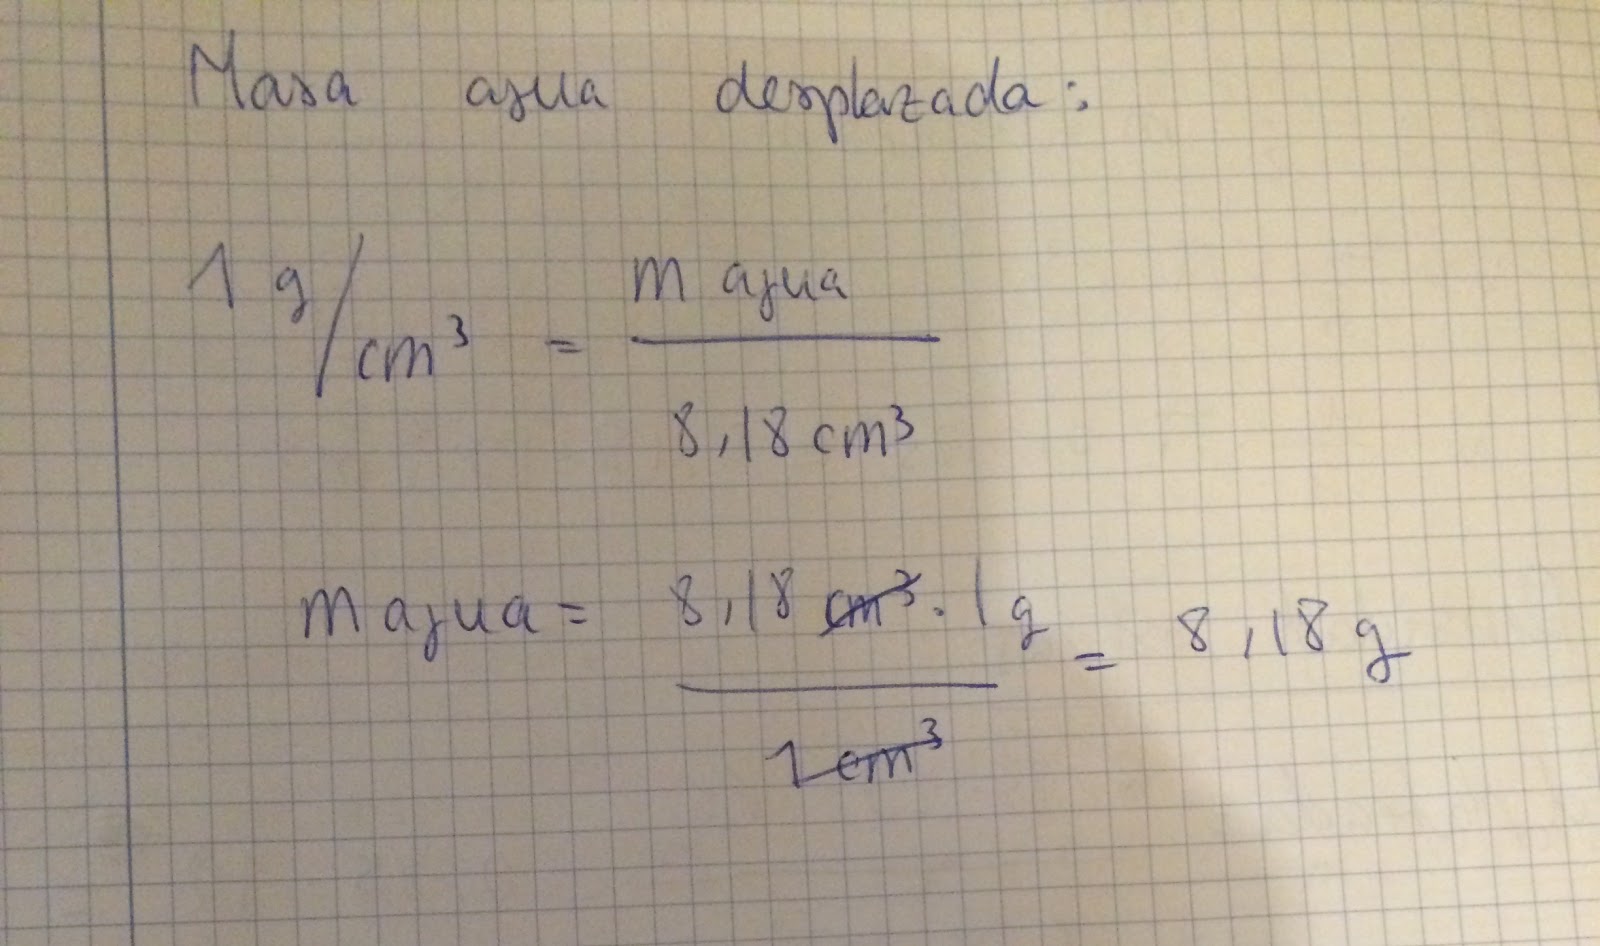 Masa agua desplazada:
1 g/cm³ = m agua / 8,18 cm³
m agua = 8,18 cm³ · 1 g / 1 cm³ = 8,18 g